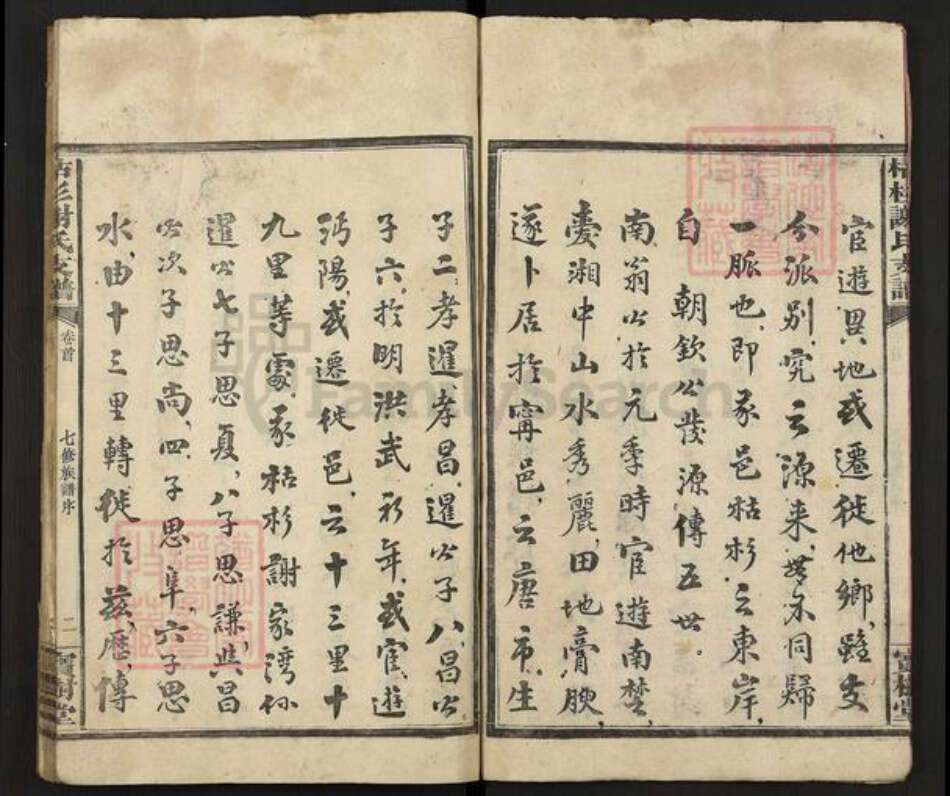 宦遊異地或遷徙他鄉雖支
分派别究云源来無不同歸
一脈也即我邑枯杉云東岸
自朝欽公發源傳五世
南翁公於元季時宦遊南楚
愛湘中山水秀麗田地膏腴
遂卜居於甯邑云唐市生
子二孝暹孝昌暹公子八昌公
子六於明洪武初年或宦遊
沔陽或遷徙邑云十三里十
九里等處我枯杉謝家灣係
暹公七子思夏八子思謙與昌
公次子思尚四子思阜六子思
水由十三里轉徙於兹歷傳
枯杉謝氏支譜
卷首
七修族譜序
二
寶樹堂
FamilySearch